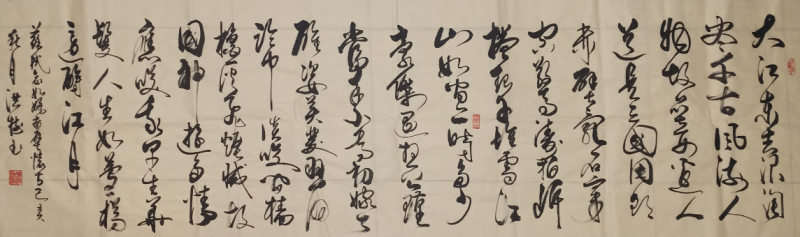 大江東去浪淘
盡千古風流人
物故壘西邊人
道是三國周郎
赤壁亂石穿
空驚濤拍岸
捲起千堆雪江
山如畫一時多少
豪傑遙想公瑾
當年小喬初嫁了
雄姿英發羽扇
綸巾談笑間檣
櫓灰飛煙滅故
國神遊多情
應笑我早生華
髮人生如夢樽
還酹江月
蘇軾念奴嬌赤壁懷古己亥
秋月洪